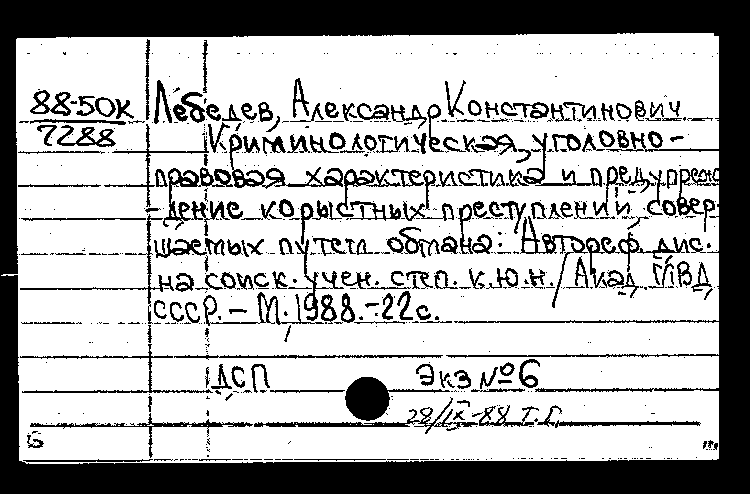 88-50К Лебедев, Александр Константинович
7288 Криминологическая, уголовно-
правовая характеристика и предупреж
-дение корыстных преступлений, совер-
шаемых путем обмана: Автореф. дис.
на соиск. учен. степ. к.ю.н. / Акад. МВД
СССР. – М., 1988. – 22 с.
ДСП Экз № 6
28/IX-88 Т.Г.
Б